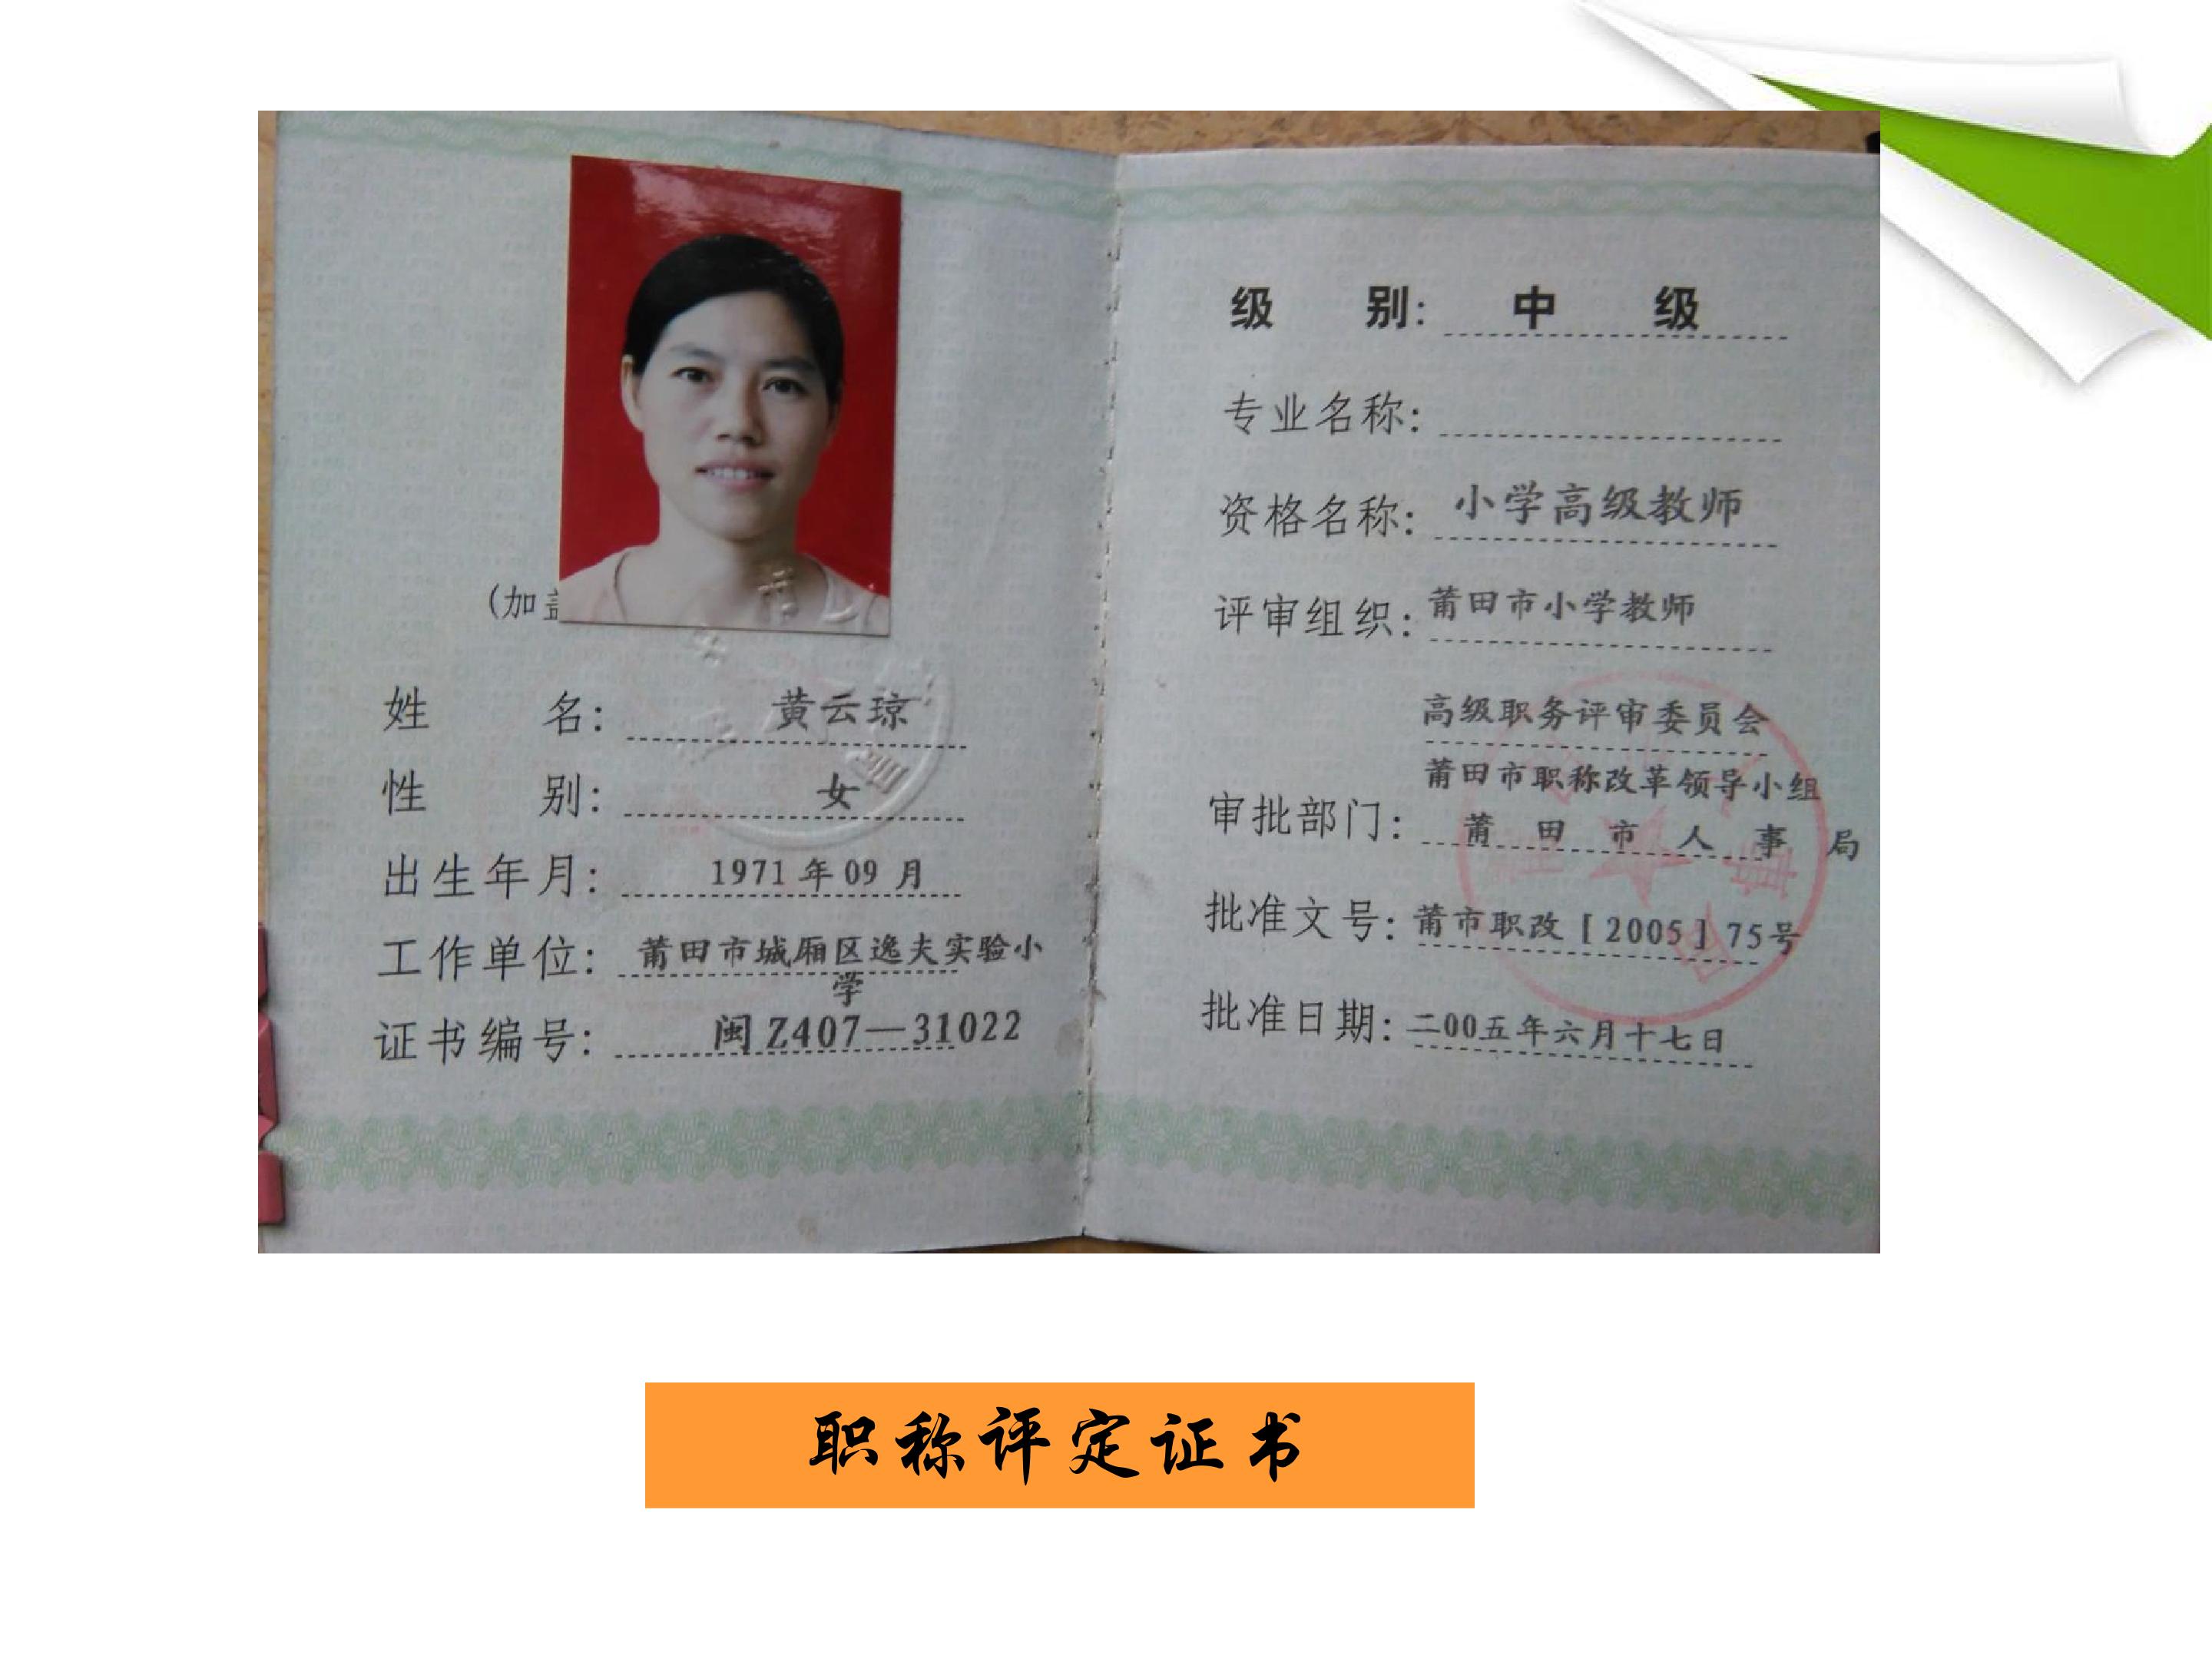 (加盖
姓 名: 黄云琼
性 别: 女
出生年月: 1971年09月
工作单位: 莆田市城厢区逸夫实验小
学
证书编号: 闽Z407—31022
级 别: 中 级
专业名称:
资格名称: 小学高级教师
评审组织: 莆田市小学教师
高级职务评审委员会
莆田市职称改革领导小组
审批部门: 莆田市人事局
批准文号: 莆市职改[2005]75号
批准日期: 二00五年六月十七日
职称评定证书